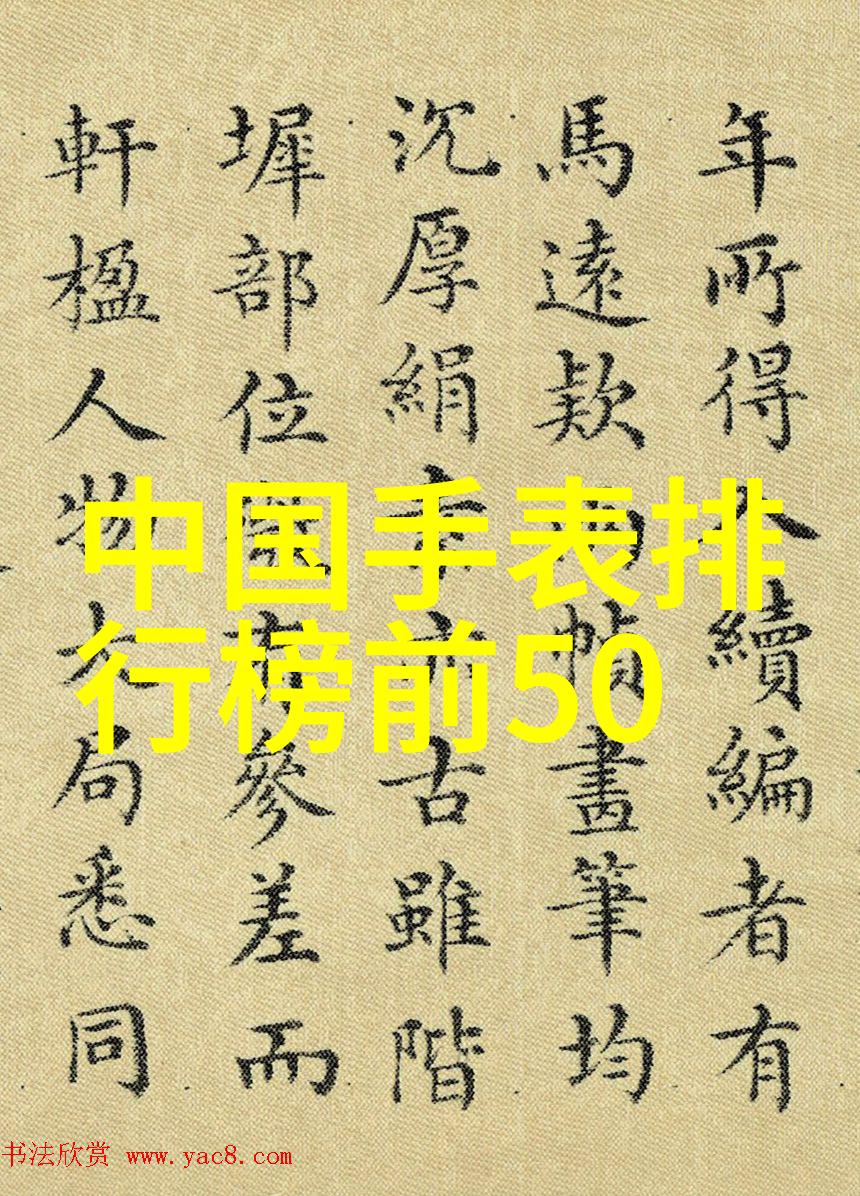 年所得入續編者有
馬遠欵幀畫筆均
沉厚絹素亦古雖階
墀部位微有參差而
軒楹人物大局悉同
中国手表排
行榜前50
书法欣赏 www.yac8.com